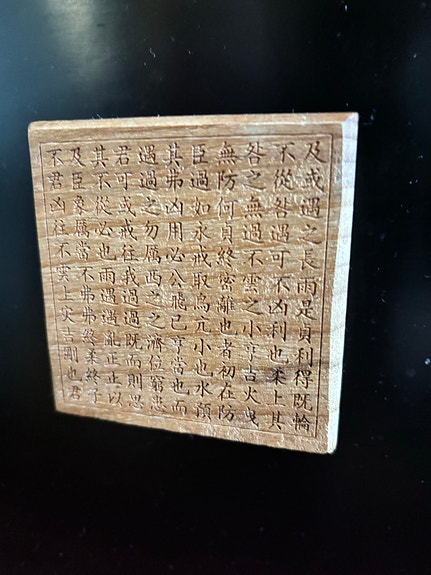 不及其君遇其臣無咎不及
君臣不可過弗過防之從或
凶象從或之凶如何無咎遇
往厲必戒勿用永貞過遇之
不當也往厲必戒終不可長
實不雨我西公取密雲不雨
上弗遇過之飛鳥離之凶是
災弗過過之已兀也小利貞
吉終亂既濟亨小者亨也利
剛柔正而位當也初吉柔得
也終止則窮也水在火上既
君子以思患而預防曳其輪